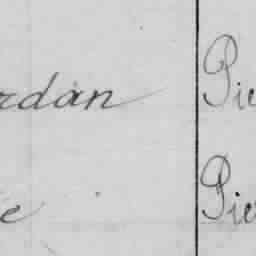 rdan Pie
e Pie